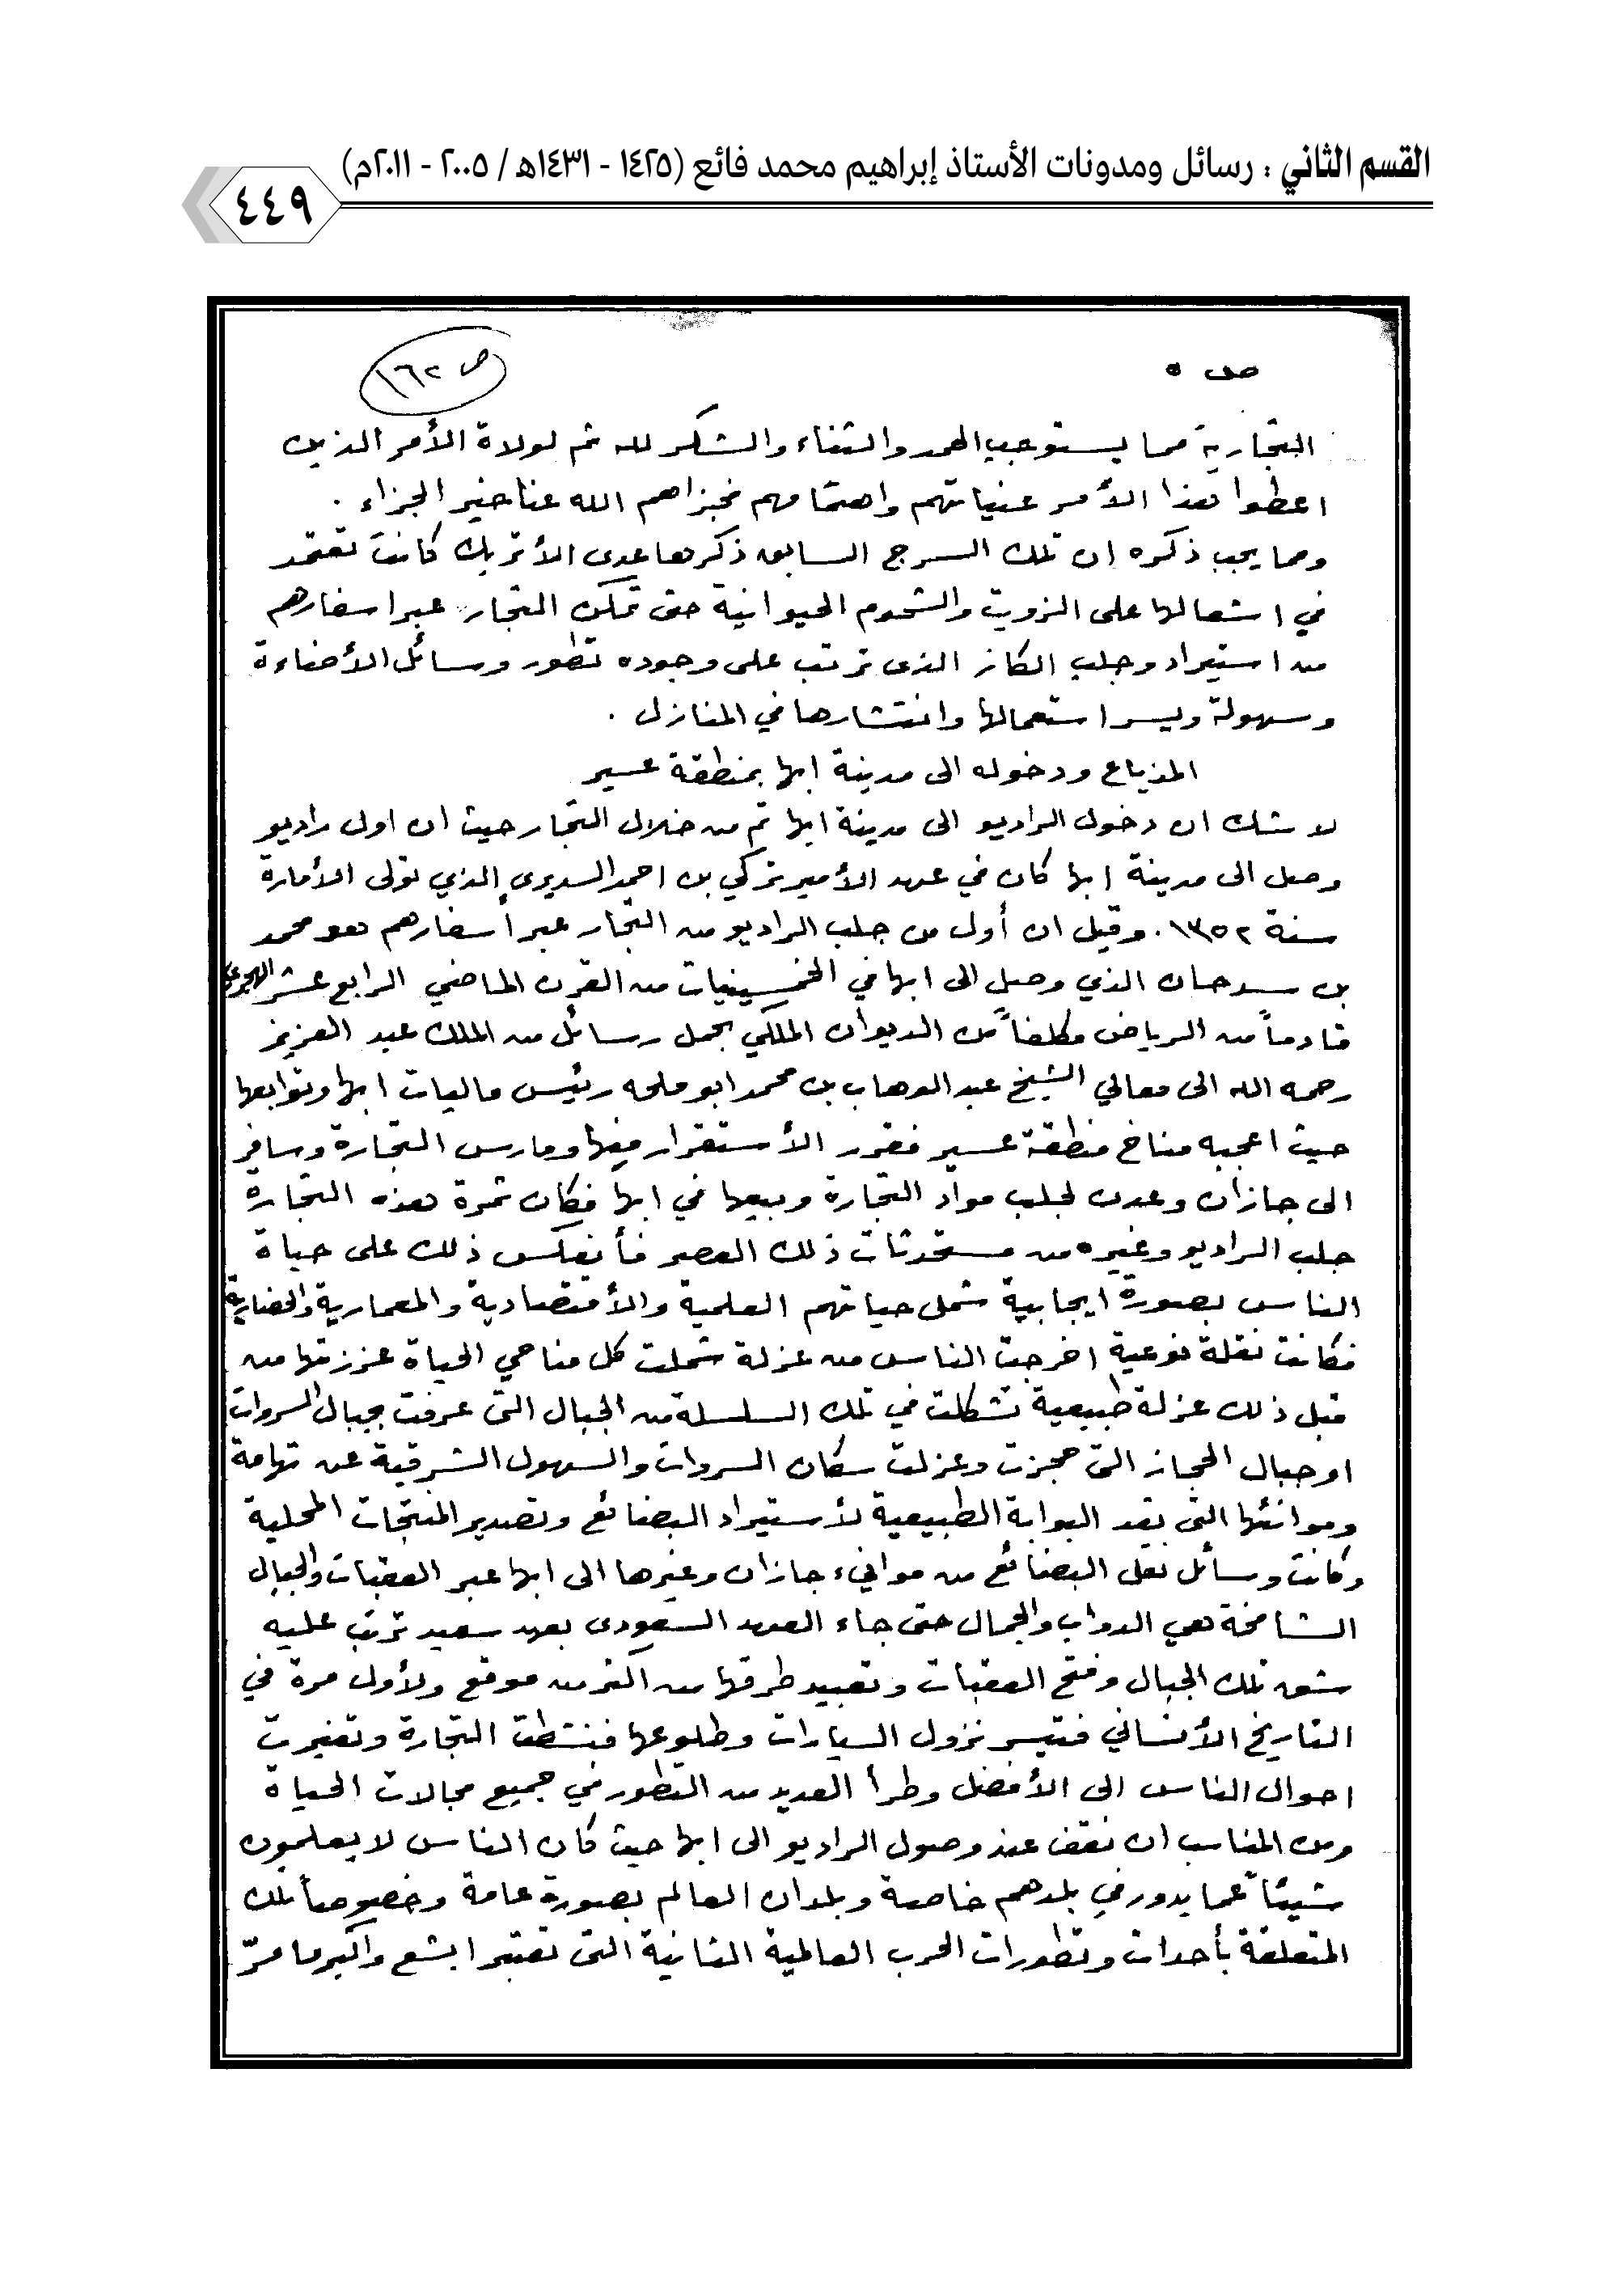 القسم الثاني : رسائل ومدونات الأستاذ إبراهيم محمد فائع (١٤٢٥ - ١٤٣١هـ / ٢٠٠٥ - ٢٠١١م)
٤٤٩
ص ٥
ص ١٦٢
التجارية مما يستوجب الحمد والثناء والشكر لله ثم لولاة الأمر الذين
اعطوا هذا الأمر عنياتهم واهتمامهم فجزاهم الله عنا خير الجزاء .
ومما يجب ذكره ان تلك السرج السابق ذكرها عدى الأتريك كانت تعتمد
في اشعالها على الزويت والشحوم الحيوانية حتى تمكن التجار عبر اسفارهم
من استيراد وجلب الكاز الذى ترتب على وجوده تطور وسائل الأضاءة
وسهولة ويسر استعمالها وانتشارها في المنازل .
المذياع ودخوله الى مدينة ابها بمنطقة عسير
لا شك ان دخول الراديو الى مدينة ابها تم من خلال التجار حيث ان اول راديو
وصل الى مدينة ابها كان في عهد الأمير تركي بن احمد السديرى الذي تولى الأمارة
سنة ١٣٥٢ . وقيل ان أول من جلب الراديو من التجار عبر أسفارهم هو محمد
بن سرحان الذي وصل الى ابها في الخمسينيات من القرن الماضي الرابع عشر الهجرى
قادماً من الرياض مكلفاً من الديوان الملكي بحمل رسائل من الملك عبد العزيز
رحمه الله الى معالي الشيخ عبد الوهاب بن محمد ابو ملحه رئيس ماليات ابها وتوابعها
حيث اعجبه مناخ منطقة عسير فقرر الأستقرار فيها ومارس التجارة وسافر
الى جازان وعدن لجلب مواد التجارة وبيعها في ابها فكان ثمرة هذه التجارة
جلب الراديو وغيره من مستحدثات ذلك العصر فأنعكس ذلك على حياة
الناس بصورة ايجابية شمل حياتهم العلمية والأقتصادية والمعمارية والحضارية
فكانت نقلة نوعية اخرجت الناس من عزلة شملت كل مناحي الحياة عززتها من
قبل ذلك عزلة طبيعية تشكلت في تلك السلسلة من الجبال التى عرفت بجبال السروات
او جبال الحجاز التى حجزت وعزلت سكان السروات والسهول الشرقية عن تهامة
وموانئها التى تعد البوابة الطبيعية لأستيراد البضائع وتصدير المنتجات المحلية
وكانت وسائل نقل البضائع من موانيء جازان وغيرها الى ابها عبر العقبات والجبال
الشامخة هي الدواب والجمال حتى جاء العهد السعودى بعهد سعيد ترتب عليه
شق تلك الجبال وفتح العقبات وتعبيد طرقها من اكثر من موقع ولأول مرة في
التاريخ الأنساني فتيسر نزول السيارات وطلوعها فنشطت التجارة وتغيرت
احوال الناس الى الأفضل وطرأ العديد من التطور في جميع مجالات الحياة
ومن المناسب ان نقف عند وصول الراديو الى ابها حيث كان الناس لا يعلمون
شيئاً عما يدور في بلدهم خاصة وبلدان العالم بصورة عامة وخصوصاً تلك
المتعلقة بأحداث وتطورات الحرب العالمية الثانية التى تعتبر ابشع واكبر ما مرّ